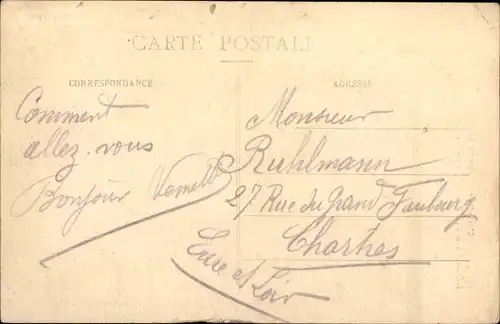 CARTE POSTALE
CORRESPONDANCE
ADRESSE
Comment
allez-vous
Bonjour
Monsieur
Ruhlmann
27 Rue du Grand Faubourg
Chartres
Eure et Loir